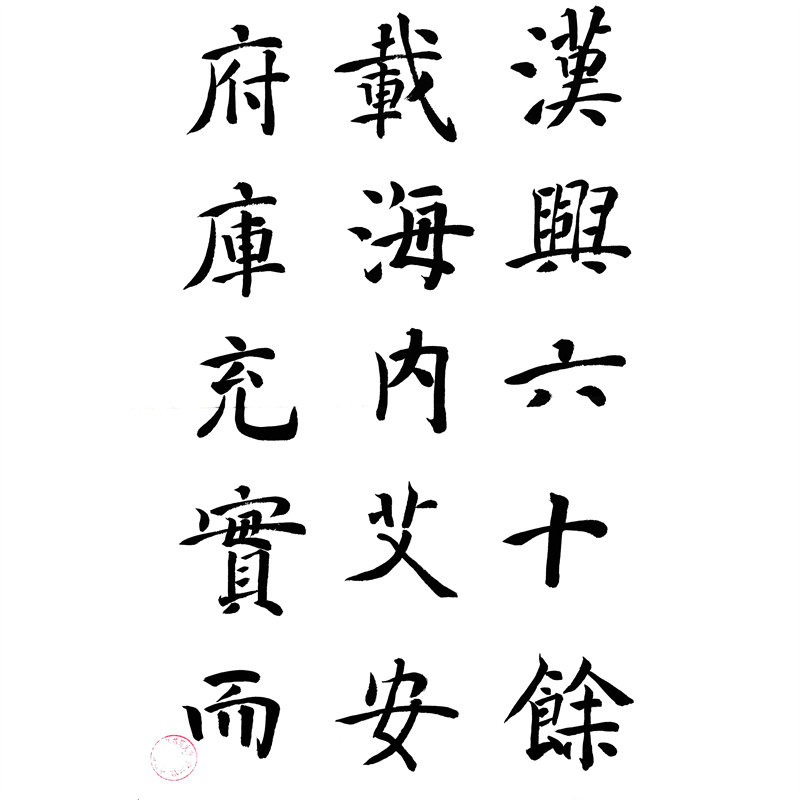 漢興六十餘
載海内艾安
府庫充實而